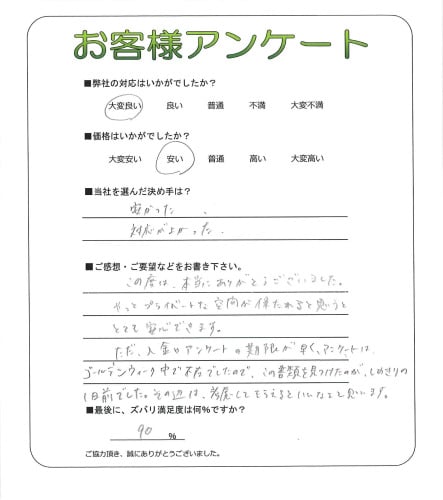 お客様アンケート
■弊社の対応はいかがでしたか?
大変良い 良い 普通 不満 大変不満
■価格はいかがでしたか?
大変安い 安い 普通 高い 大変高い
■当社を選んだ決め手は?
安かった、
対応がよかった。
■ご感想・ご要望などをお書き下さい。
この度は、本当にありがとうございました。
やっとプライベートな空間が保たれると思うと
とても安心できます。
ただ、入金やアンケートの期限が早く、アンケートは、
ゴールデンウィーク中で不在でしたので、この書類を見つけたのが、しめきりの
1日前でした。その辺は、考慮してもらえるといいなと思います。
■最後に、ズバリ満足度は何%ですか?
90 %
ご協力頂き、誠にありがとうございました。